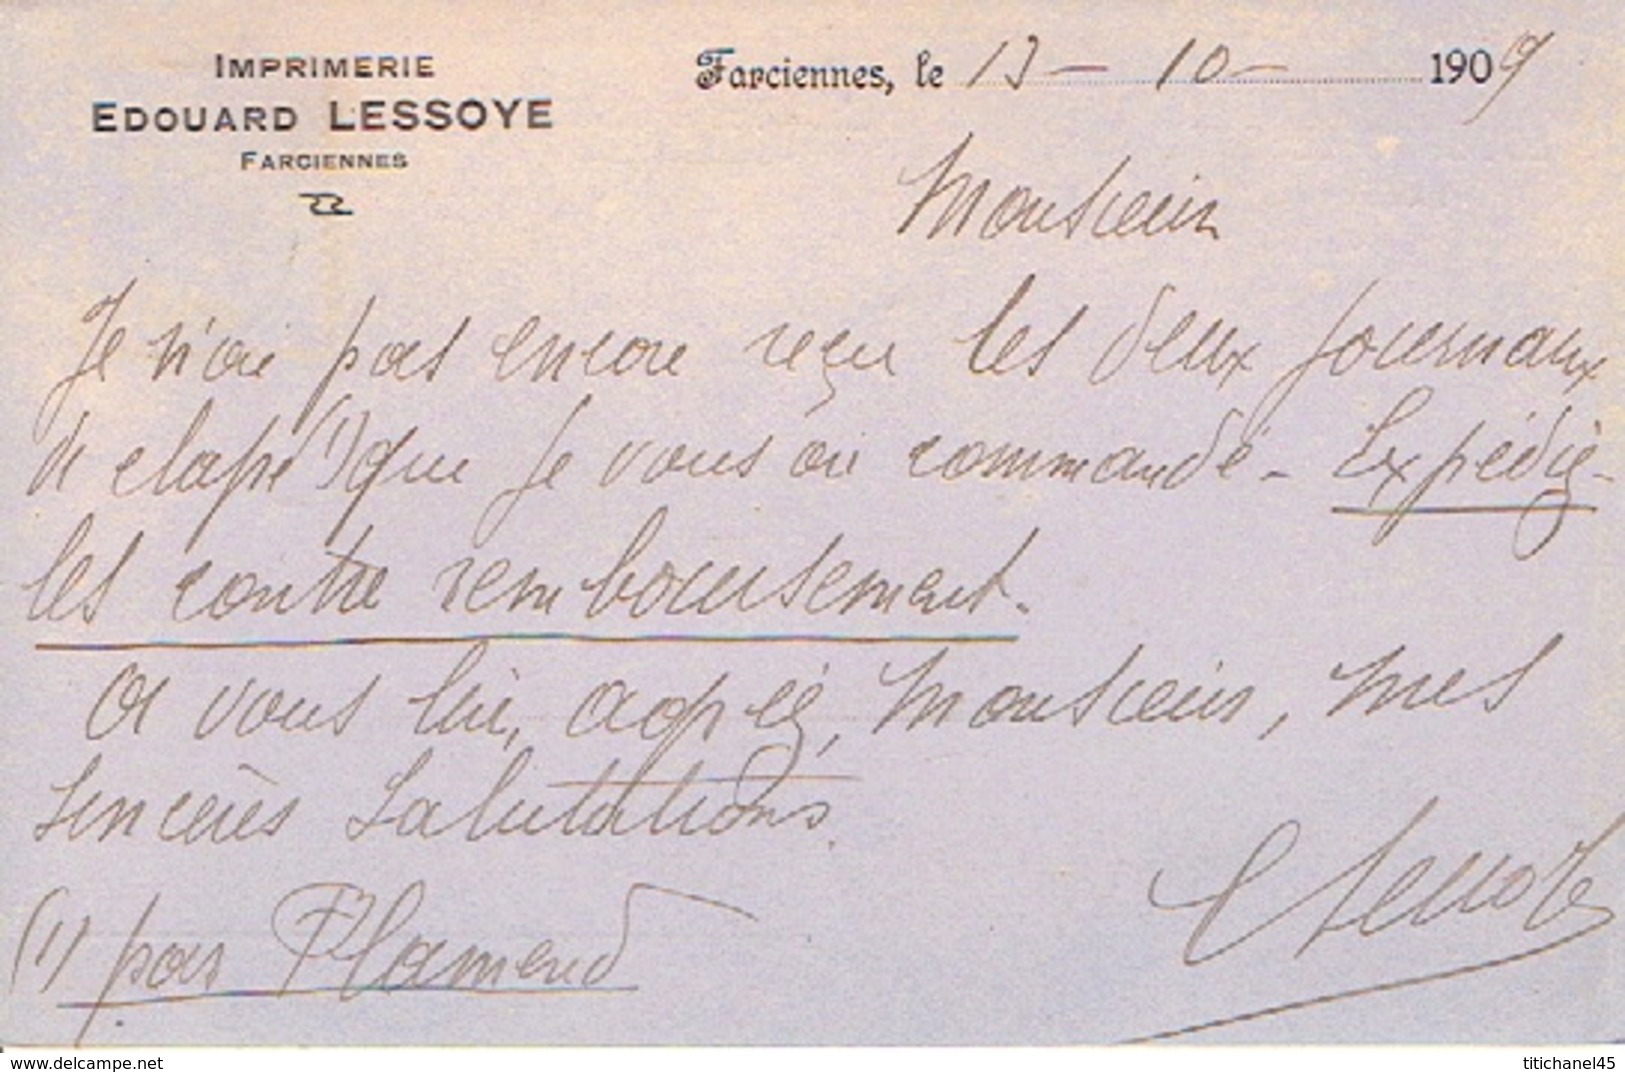 IMPRIMERIE
EDOUARD LESSOYE
FARCIENNES
Farciennes, le 13 - 10 - 1909
Monsieur
Je n'ai pas encore reçu les deux journaux
de clapé (1) que je vous ai commandé - Expédiez-
les contre remboursement.
A vous lire, agréez, Monsieur, mes
sincères salutations.
E Lessoye
(1) pas Flamend
www.delcampe.net
titichanel45